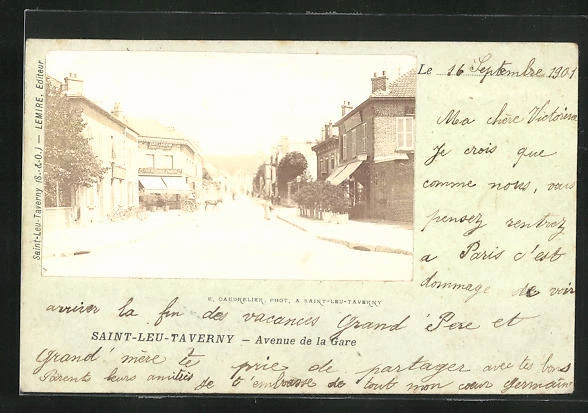 Saint-Leu-Taverny (S.-&-O.) — LEMIRE, Editeur
Le 16 Septembre 1901
Ma chère Victorine
Je crois que
comme nous, vous
pensez rentrez
a Paris c'est
dommage de voir
E. CAUDRELIER, PHOT, A SAINT-LEU-TAVERNY
arriver la fin des vacances Grand' Pere et
SAINT-LEU-TAVERNY — Avenue de la Gare
Grand' mère te prie de partager avec tes bons
Parents leurs amitiés Je t'embrasse de tout mon cœur Germaine